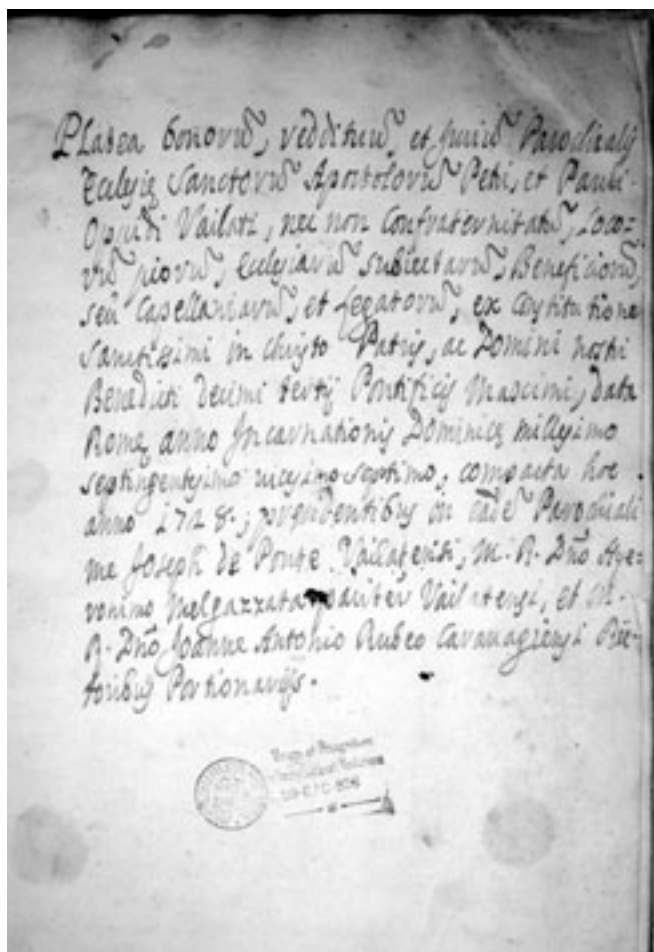 PLatea bonorū, reddituū, et juriū Parochialis
Ecclesię Sanctorū Apostolorū Petri, et Pauli
Oppidi Vailati, nec non Confraternitatū, Loco=
rū piorū, Ecclesiarū subiectarū, Beneficiorū,
seu Capellaniarū, et Legatorū, ex Constitutione
Sanctissimi in Christo Patris, ac Domini nostri
Benedicti decimi tertij Pontificis Maximi, data
Romę anno Incarnationis Dominicę millesimo
septingentesimo vicesimo septimo, compacta hoc
anno 1728., in eadē Parochiali
me Joseph de Ponte Vailatensi, M. R. Dño Hye=
ronimo Melgazzata pariter Vailatensi, et M.
R. Dño Joanne Antonio Rubeo Cavanagiensi Rec=
toribus Portionarijs.